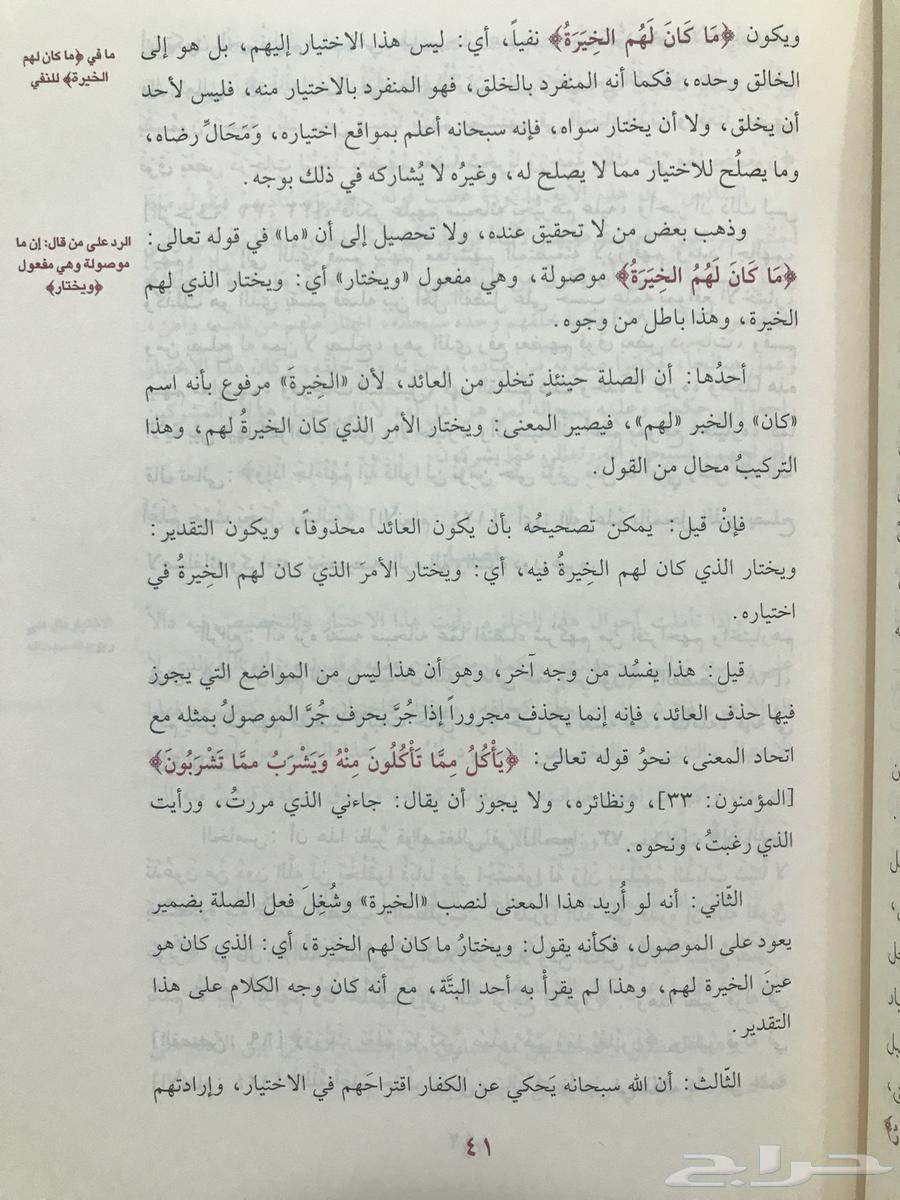 ويكون ﴿مَا كَانَ لَهُم الخِيَرَةُ﴾ نفياً، أي: ليس هذا الاختيار إليهم، بل هو إلى
الخالق وحده، فكما أنه المنفرد بالخلق، فهو المنفرد بالاختيار منه، فليس لأحد
أن يخلق، ولا أن يختار سواه، فإنه سبحانه أعلم بمواقع اختياره، وَمَحَالِّ رضاه،
وما يصلُح للاختيار مما لا يصلح له، وغيرُه لا يُشاركه في ذلك بوجه.
ما في ﴿ما كان لهم
الخيرة﴾ للنفي
وذهب بعض من لا تحقيق عنده، ولا تحصيل إلى أن «ما» في قوله تعالى:
﴿مَا كَانَ لَهُمُ الخِيَرَةُ﴾ موصولة، وهي مفعول «ويختار» أي: ويختار الذي لهم
الخيرة، وهذا باطل من وجوه.
الرد على من قال: إن ما
موصولة وهي مفعول
﴿ويختار﴾
أحدُها: أن الصلة حينئذٍ تخلو من العائد، لأن «الخِيرةَ» مرفوع بأنه اسم
«كان» والخبر «لهم»، فيصير المعنى: ويختار الأمر الذي كان الخيرةُ لهم، وهذا
التركيبُ محال من القول.
فإنْ قيل: يمكن تصحيحُه بأن يكون العائد محذوفاً، ويكون التقدير:
ويختار الذي كان لهم الخِيرةُ فيه، أي: ويختار الأمرَ الذي كان لهم الخِيرةُ في
اختياره.
قيل: هذا يفسُد من وجه آخر، وهو أن هذا ليس من المواضع التي يجوز
فيها حذف العائد، فإنه إنما يحذف مجروراً إذا جُرَّ بحرف جُرَّ الموصولُ بمثله مع
اتحاد المعنى، نحوُ قوله تعالى: ﴿يَأْكُلُ مِمَّا تَأْكُلُونَ مِنْهُ وَيَشْرَبُ ممَّا تَشْرَبُونَ﴾
[المؤمنون: ٣٣]، ونظائره، ولا يجوز أن يقال: جاءني الذي مررتُ، ورأيت
الذي رغبتُ، ونحوه.
الثّاني: أنه لو أُريد هذا المعنى لنصب «الخيرة» وشُغِلَ فعل الصلة بضمير
يعود على الموصول، فكأنه يقول: ويختارُ ما كان لهم الخيرة، أي: الذي كان هو
عينَ الخيرة لهم، وهذا لم يقرأْ به أحد البتَّة، مع أنه كان وجه الكلام على هذا
التقدير.
الثّالث: أن الله سبحانه يَحكي عن الكفار اقتراحَهم في الاختيار، وإرادتهم
٤١
حراج